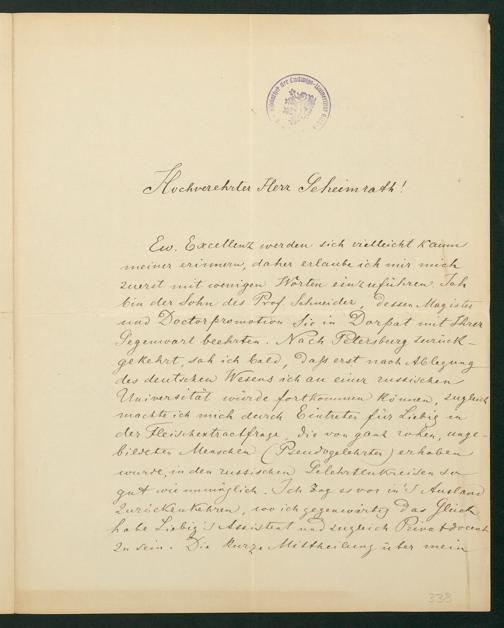 Bibliothek der Ludwigs-Universität
Hochverehrter Herr Geheimrath!
Ew. Excellenz werden sich vielleicht kaum
meiner erinnern, daher erlaube ich mir mich
zuerst mit wenigen Worten einzuführen. Ich
bin der Sohn des Prof Schneider, dessen Magister
und Doctorpromotion Sie in Dorpat mit Ihrer
Gegenwart beehrten. Nach Petersburg zurück-
gekehrt, sah ich bald, daß erst nach Ablegung
des deutschen Wesens ich an einer russischen
Universität würde fortkommen können, zugleich
machte ich mich durch Eintreten für Liebig in
der Fleischextractfrage, die von ganz rohen, unge-
bildeten Menschen (Pseudogelehrten) erhoben
wurde, in den russischen Gelehrtenkreisen so
gut wie unmöglich. Ich zog es vor in's Ausland
zurückzukehren, wo ich gegenwärtig das Glück
habe Liebig's Assistent und zugleich Privatdocent
zu sein. Die kurze Mittheilung über mein
338